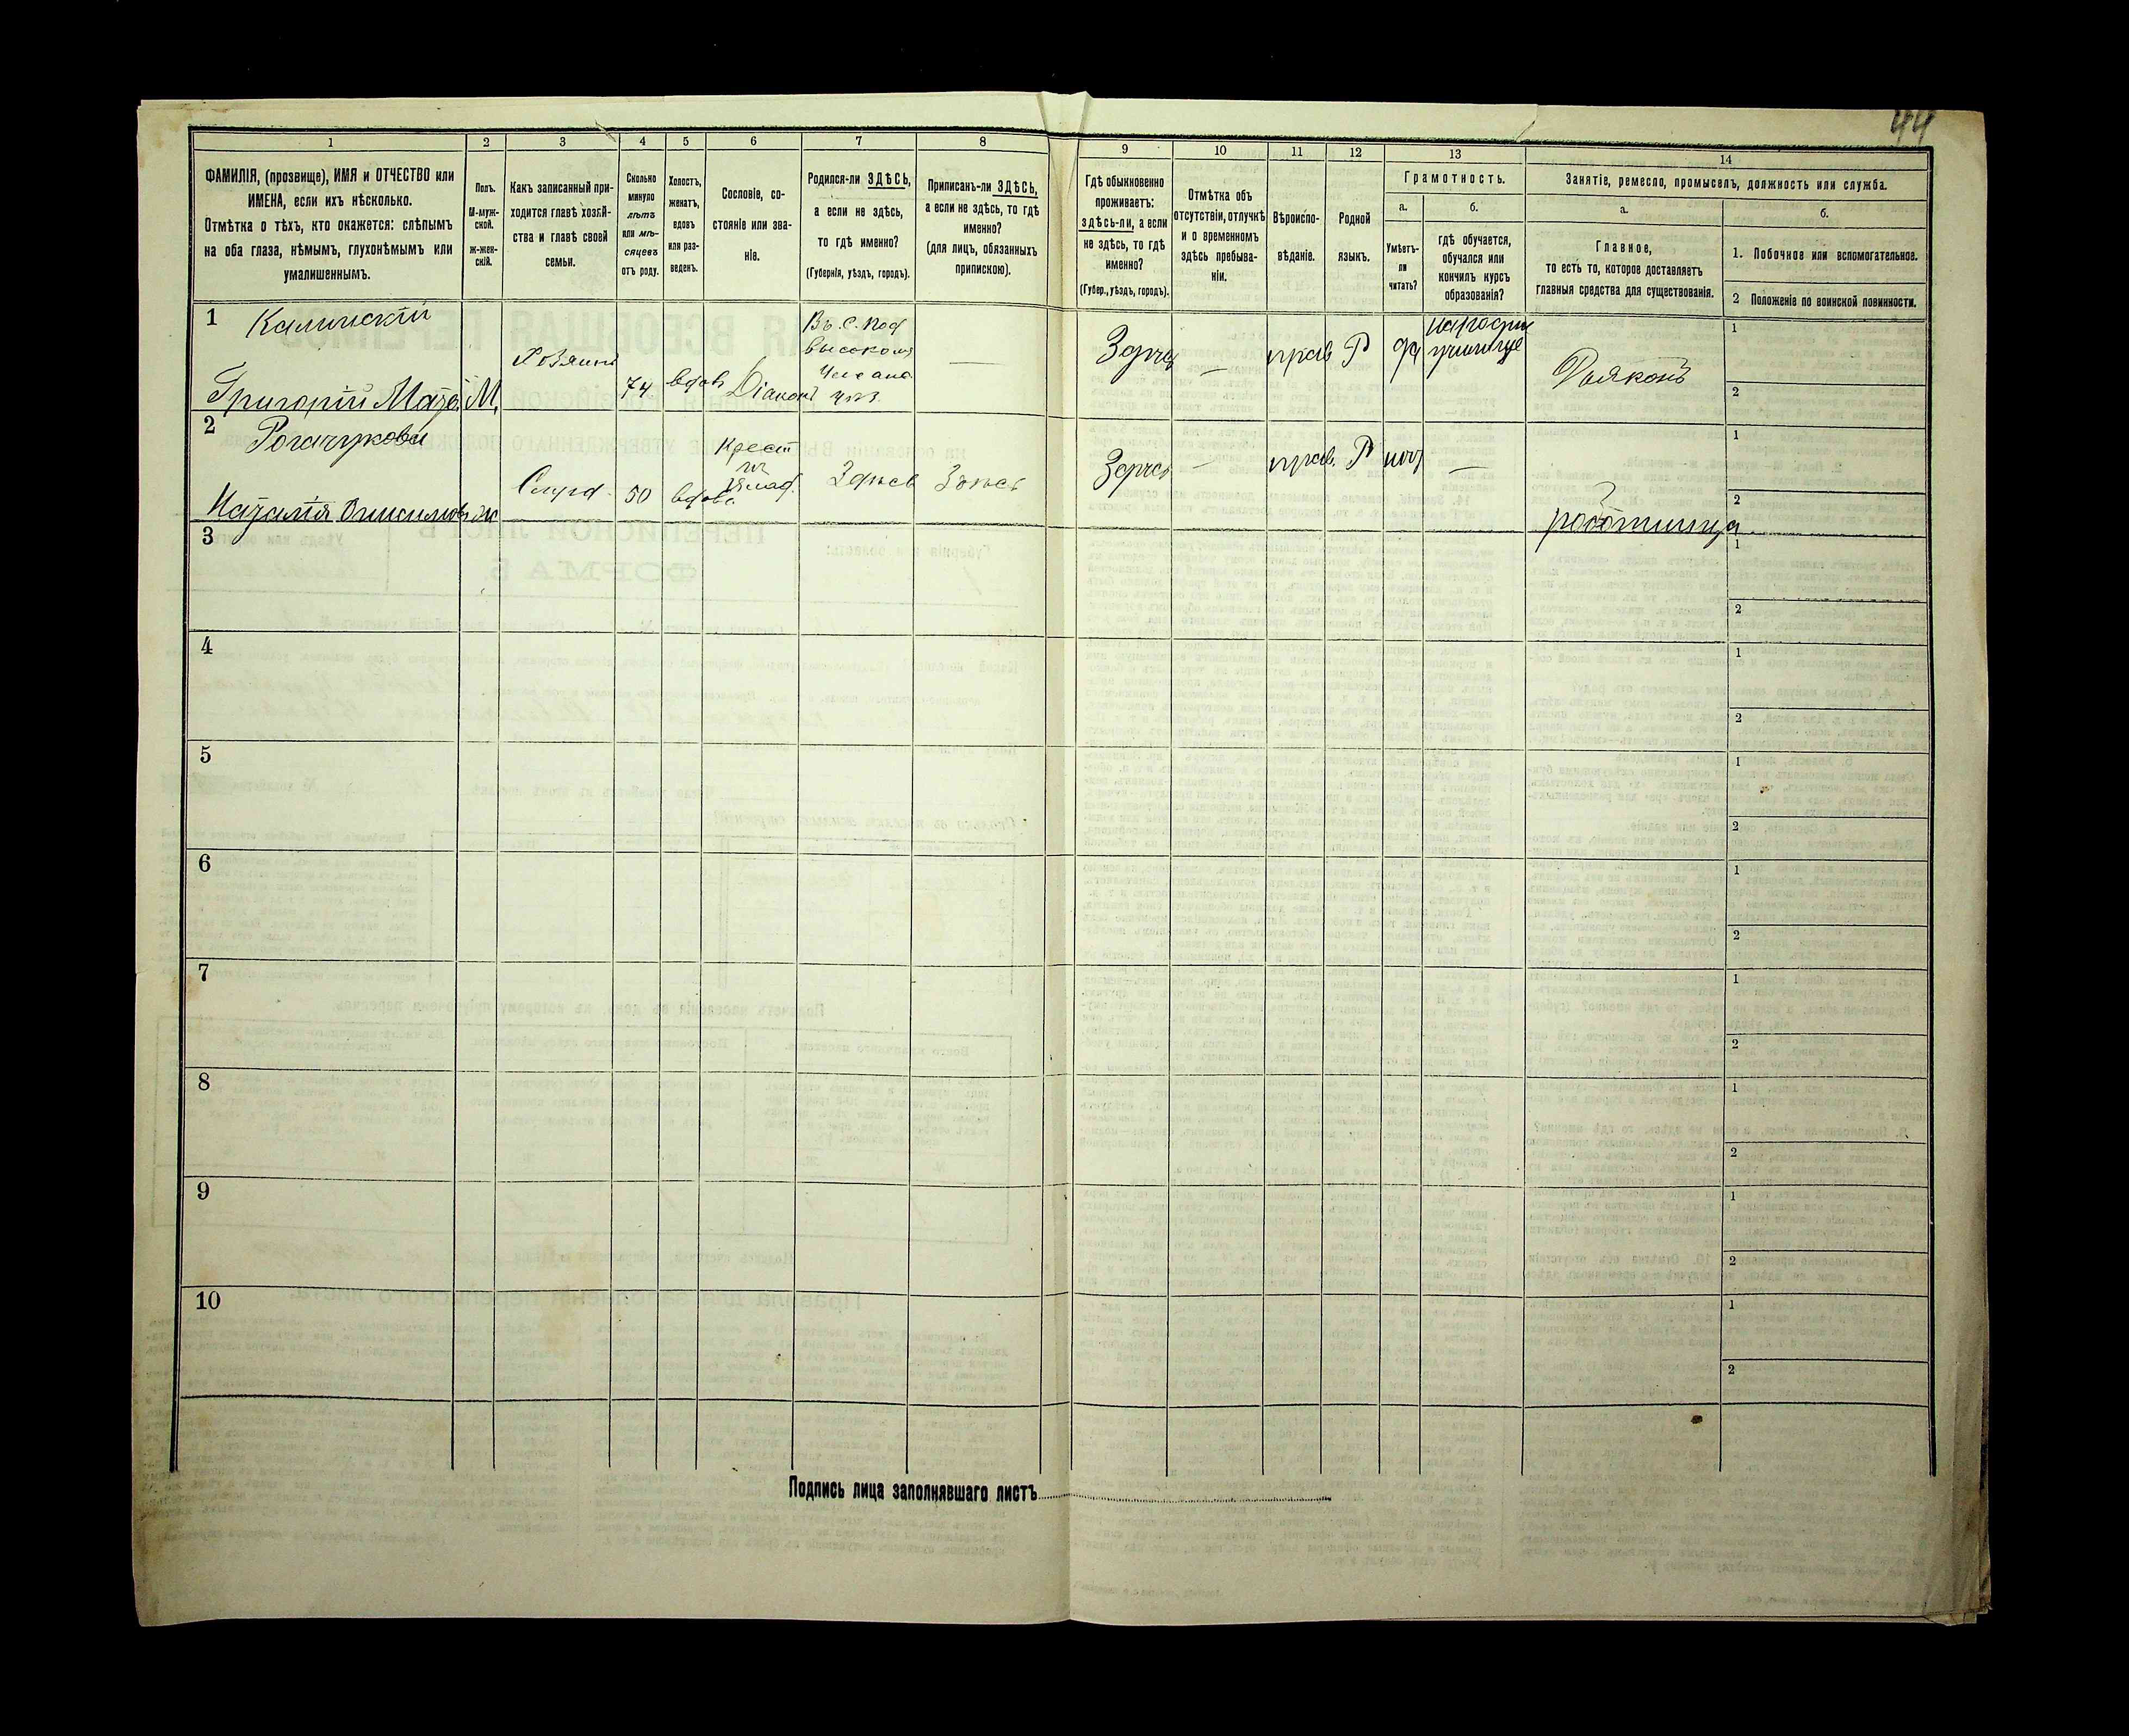 44
1
2
3
4
5
6
7
8
9
10
11
12
13
14
ФАМИЛІЯ, (прозвище), ИМЯ и ОТЧЕСТВО или
ИМЕНА, если ихъ нѣсколько.
Отмѣтка о тѣхъ, кто окажется: слѣпымъ
на оба глаза, нѣмымъ, глухонѣмымъ или
умалишеннымъ.
Полъ.
М-муж-
ской.
Ж-жен-
скій.
Какъ записанный при-
ходится главѣ хозяй-
ства и главѣ своей
семьи.
Сколько
минуло
лѣтъ
или мѣ-
сяцевъ
отъ роду.
Холостъ,
женатъ,
вдовъ
или раз-
веденъ.
Сословіе, со-
стояніе или зва-
ніе.
Родился-ли ЗДѢСЬ,
а если не здѣсь,
то гдѣ именно?
(Губернія, уѣздъ, городъ).
Приписанъ-ли ЗДѢСЬ,
а если не здѣсь, то гдѣ
именно?
(для лицъ, обязанныхъ
припискою).
Гдѣ обыкновенно
проживаетъ:
здѣсь-ли, а если
не здѣсь, то гдѣ
именно?
(Губер., уѣздъ, городъ).
Отмѣтка объ
отсутствіи, отлучкѣ
и о временномъ
здѣсь пребыва-
ніи.
Вѣроиспо-
вѣданіе.
Родной
языкъ.
Грамотность.
а.
Умѣетъ-
ли
читать?
б.
гдѣ обучается,
обучался или
кончилъ курсъ
образованія?
Занятіе, ремесло, промыселъ, должность или служба.
а.
Главное,
то есть то, которое доставляетъ
главныя средства для существованія.
б.
1. Побочное или вспомогательное.
2 Положеніе по воинской повинности.
1 Калинскій
Григорій М.
Хозяинъ
74
вдов
Діаконъ
Въ с. Под
высоком
—
—
прав
Р
да
училище
Дьяконъ
1
2
2
Наталія Онисимов ж
Служ.
50
вдова
Крест
Здѣсь
Здѣсь
—
прав.
Р
—
работница
1
2
3
1
2
4
1
2
5
1
2
6
1
2
7
1
2
8
1
2
9
1
2
10
1
2
Подпись лица заполнявшаго листъ